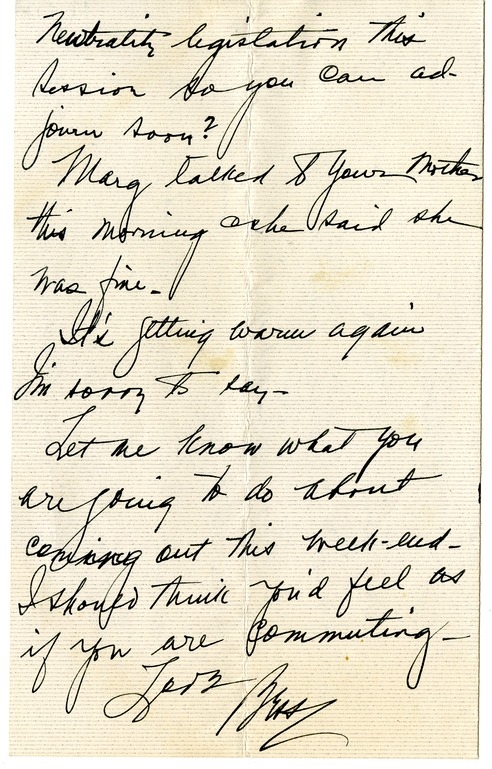 Neutrality legislation this
session so you can ad-
journ soon?
Marg talked to your Mother
this morning & she said she
was fine-
It's getting warm again
I'm sorry to say-
Let me know what you
are going to do about
coming out this week-end-
I should think you'd feel as
if you are commuting-
Love Bess